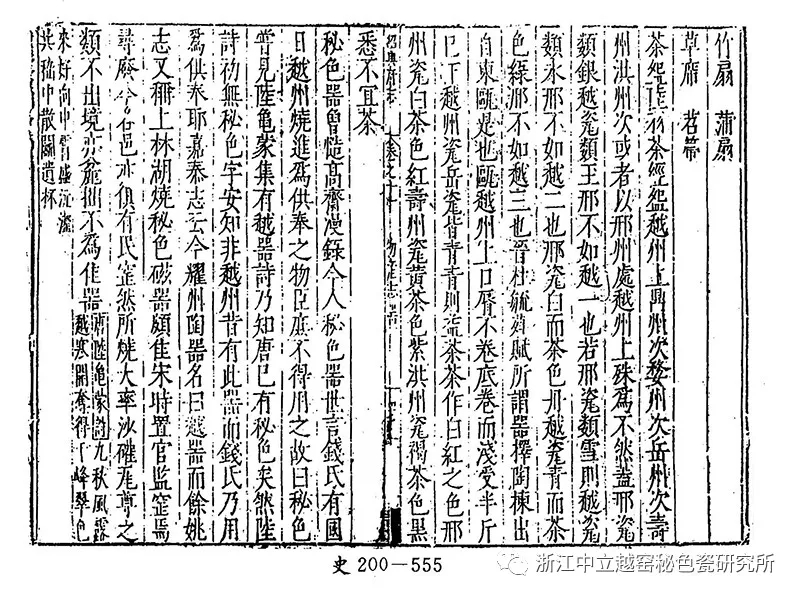 竹扇　蒲扇
草蓆　苕帚
茶盌陸羽茶經盌越州上鼎州次婺州次岳州次壽
州洪州次或者以邢州處越州上殊為不然蓋邢瓷
類銀越瓷類玉邢不如越一也若邢瓷類雪則越瓷
類氷邢不如越二也邢瓷白而茶色丹越瓷青而茶
色綠邢不如越三也晉杜毓荈賦所謂器擇陶棟出
自東甌是也甌越州上口脣不卷底卷而淺受半斤
已下越州瓷岳瓷皆青青則益茶茶作白紅之色邢
州瓷白茶色紅壽州瓷黃茶色紫洪州瓷褐茶色黑
悉不宜茶
紹興府志　卷之十　物產志　器
秘色器曾慥高齋漫錄今人秘色器世言錢氏有國
日越州燒進為供奉之物臣庶不得用之故曰秘色
嘗見陸龜蒙集有越器詩乃知唐已有秘色矣然陸
詩初無秘色字安知非越州昔有此器而錢氏乃用
為供奉耶嘉泰志云今耀州陶器名曰越器而餘姚
志又稱上林湖燒秘色磁器頗佳宋時置官監窑焉
尋廢今各邑亦俱有民窑然所燒大率沙礶瓦尊之
類不出境亦麄拙不為佳器
唐陸龜蒙詩九秋風露
越窑開奪得千峰翠色
來好向中宵盛沆瀣
共嵇中散鬬遺杯
史 200－555
浙江中立越窑秘色瓷研究所